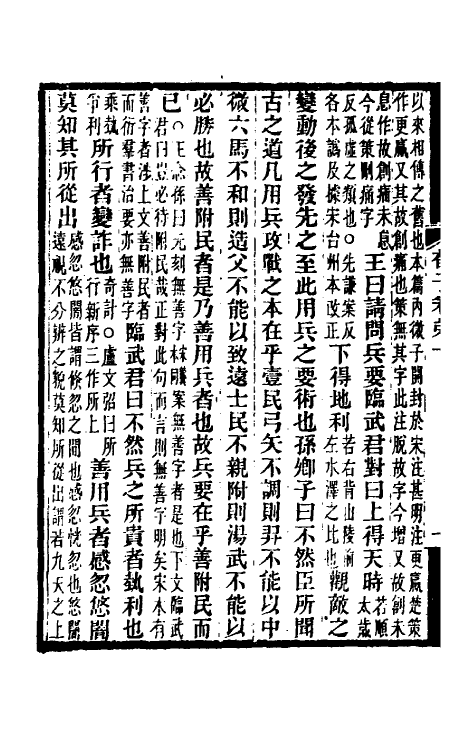 以來相傳之舊也本篇內微子開封於宋注甚明注更羸楚策
作更羸又其故創痛也策無其字此注脫故字今增又故創未
息作故創痛未息
今從策刪痛字
王曰請問兵要臨武君對曰上得天時
若順
太歲
反孤虛之類也○先謙案反
各本譌及據宋台州本改正
下得地利
若右背山陵前
左水澤之比也
觀敵之
變動後之發先之至此用兵之要術也孫卿子曰不然臣所聞
古之道凡用兵攻戰之本在乎壹民弓矢不調則羿不能以中
微六馬不和則造父不能以致遠士民不親附則湯武不能以
必勝也故善附民者是乃善用兵者也故兵要在乎善附民而
已
○王念孫曰元刻無善字案無善字者是也下文臨武
君曰豈必待附民哉正對此句而言則無善字明矣宋本有
善字者涉上文善附民者
而衍羣書治要亦無善字
臨武君曰不然兵之所貴者埶利也
乘埶
爭利
所行者變詐也
奇計○盧文弨曰所
行新序三作所上
善用兵者感忽悠闇
莫知其所從出
感忽悠闇皆謂倏忽之間也感忽恍忽也悠闇
遠視不分辨之貌莫知所從出謂若九天之上